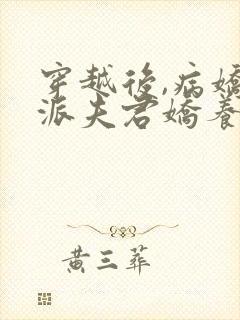 穿越後,病嬌
派夫君嬌養
黃三葬